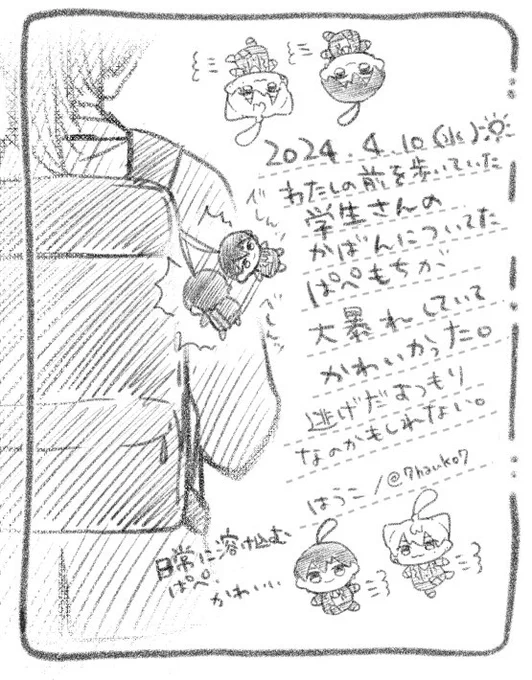 2024.4.10(水)
わたしの前を歩いていた
学生さんの
かばんについてた
ぱぺもちが
大暴れしていて
かわいかった。
逃げだすつもり
なのかもしれない。
はうこ/@7hauko7
日常に溶け込む
ぱぺ。
かわいい